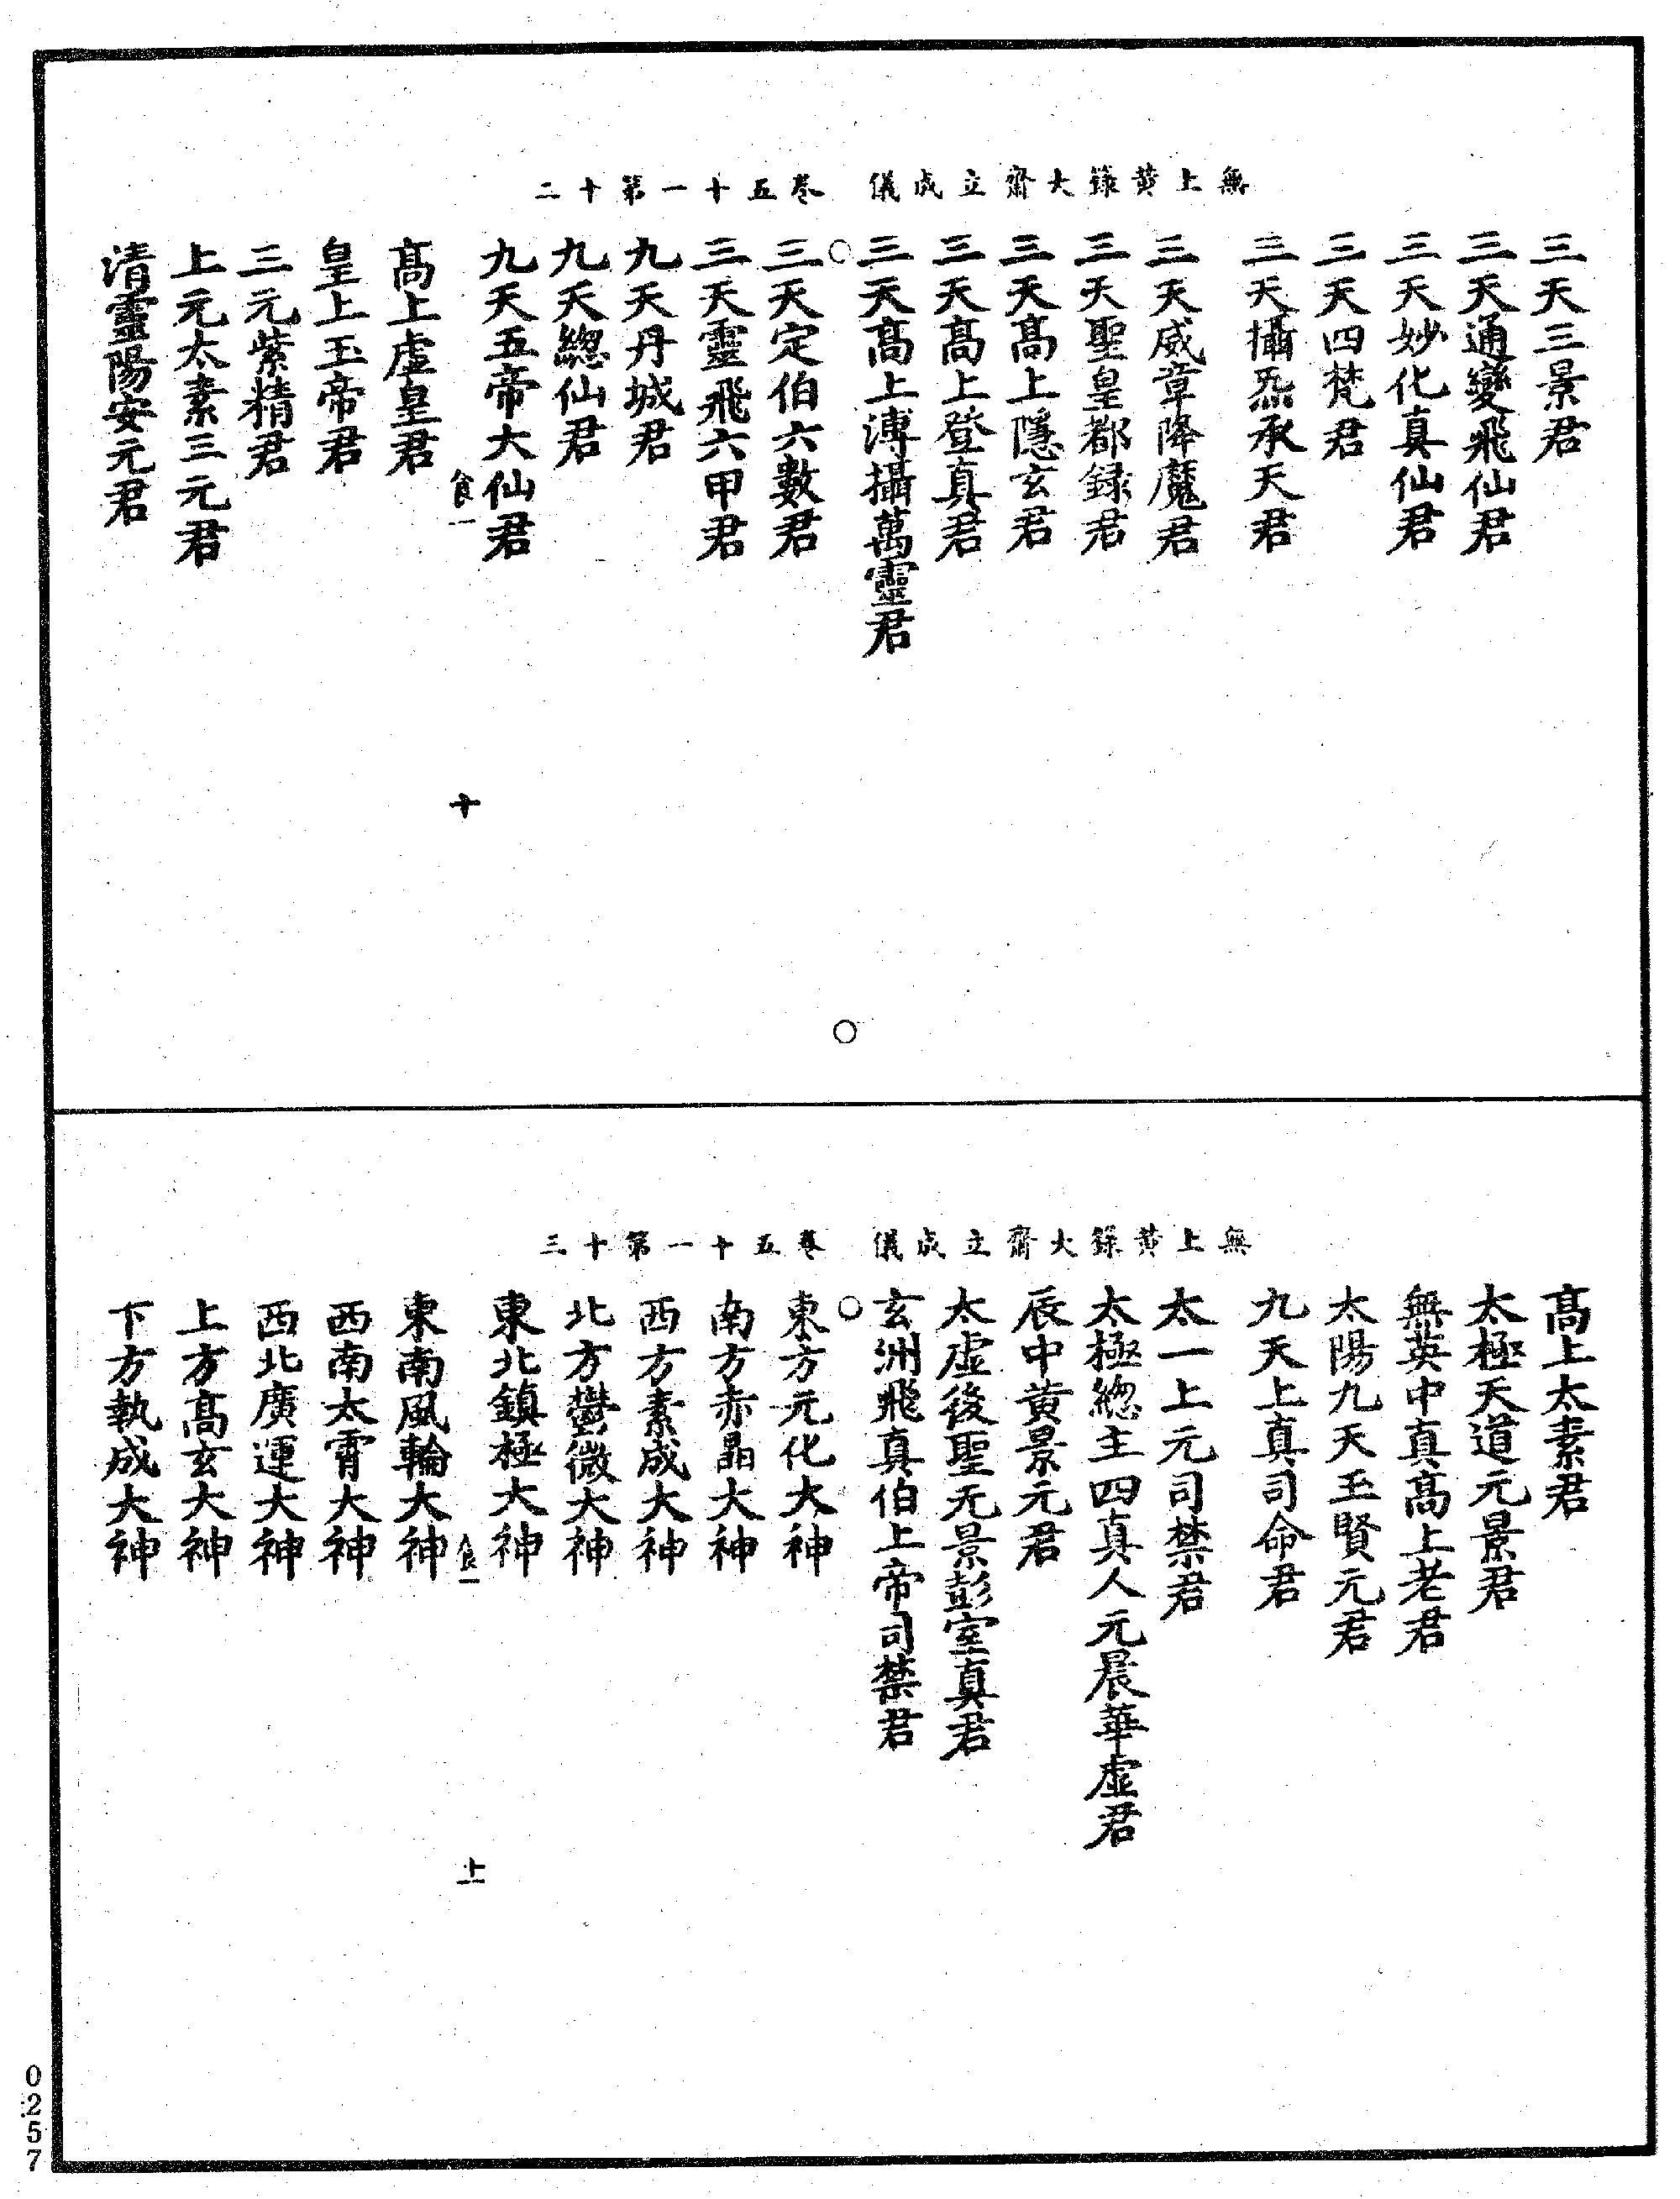 無上黃籙大齋立成儀　卷五十一第十二
三天三景君
三天通變飛仙君
三天妙化真仙君
三天四梵君
三天攝炁承天君
三天威章降魔君
三天聖皇都録君
三天髙上隱玄君
三天髙上登真君
三天髙上溥攝萬靈君
三天定伯六數君
三天靈飛六甲君
九天丹城君
九天緫仙君
九天五帝大仙君
食一
十
髙上虛皇君
皇上玉帝君
三元紫精君
上元太素三元君
清靈陽安元君
無上黃籙大齋立成儀　卷五十一第十三
髙上太素君
太極天道元景君
無英中真髙上老君
太陽九天玉賢元君
九天上真司命君
太一上元司禁君
太極緫主四真人元晨華虛君
辰中黃景元君
太虛後聖无景彭室真君
玄洲飛真伯上帝司禁君
東方元化大神
南方赤晶大神
西方素成大神
北方鬱微大神
東北鎮極大神
食一
上
東南風輪大神
西南太霄大神
西北廣運大神
上方髙玄大神
下方執成大神
0257